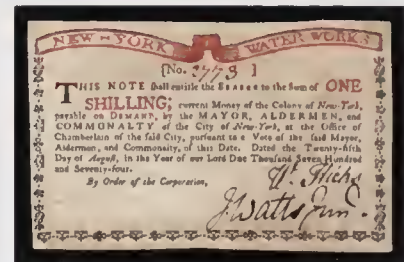 NEW-YORK WATER WORKS
[No. 2773 ]
THIS NOTE ſhall entitle the BEARER to the Sum of ONE
SHILLING; current Money of the Colony of New-York,
payable on DEMAND, by the MAYOR, ALDERMEN, and
COMMONALTY of the City of New-York, at the Office of
Chamberlain of the ſaid City, purſuant to a Vote of the ſaid Mayor,
Aldermen, and Commonalty, of this Date. Dated the Twenty-fifth
Day of Auguſt, in the Year of our Lord One Thouſand Seven Hundred
and Seventy-four.
By Order of the Corporation,
Wt. Hicks
J. Watts Junr.